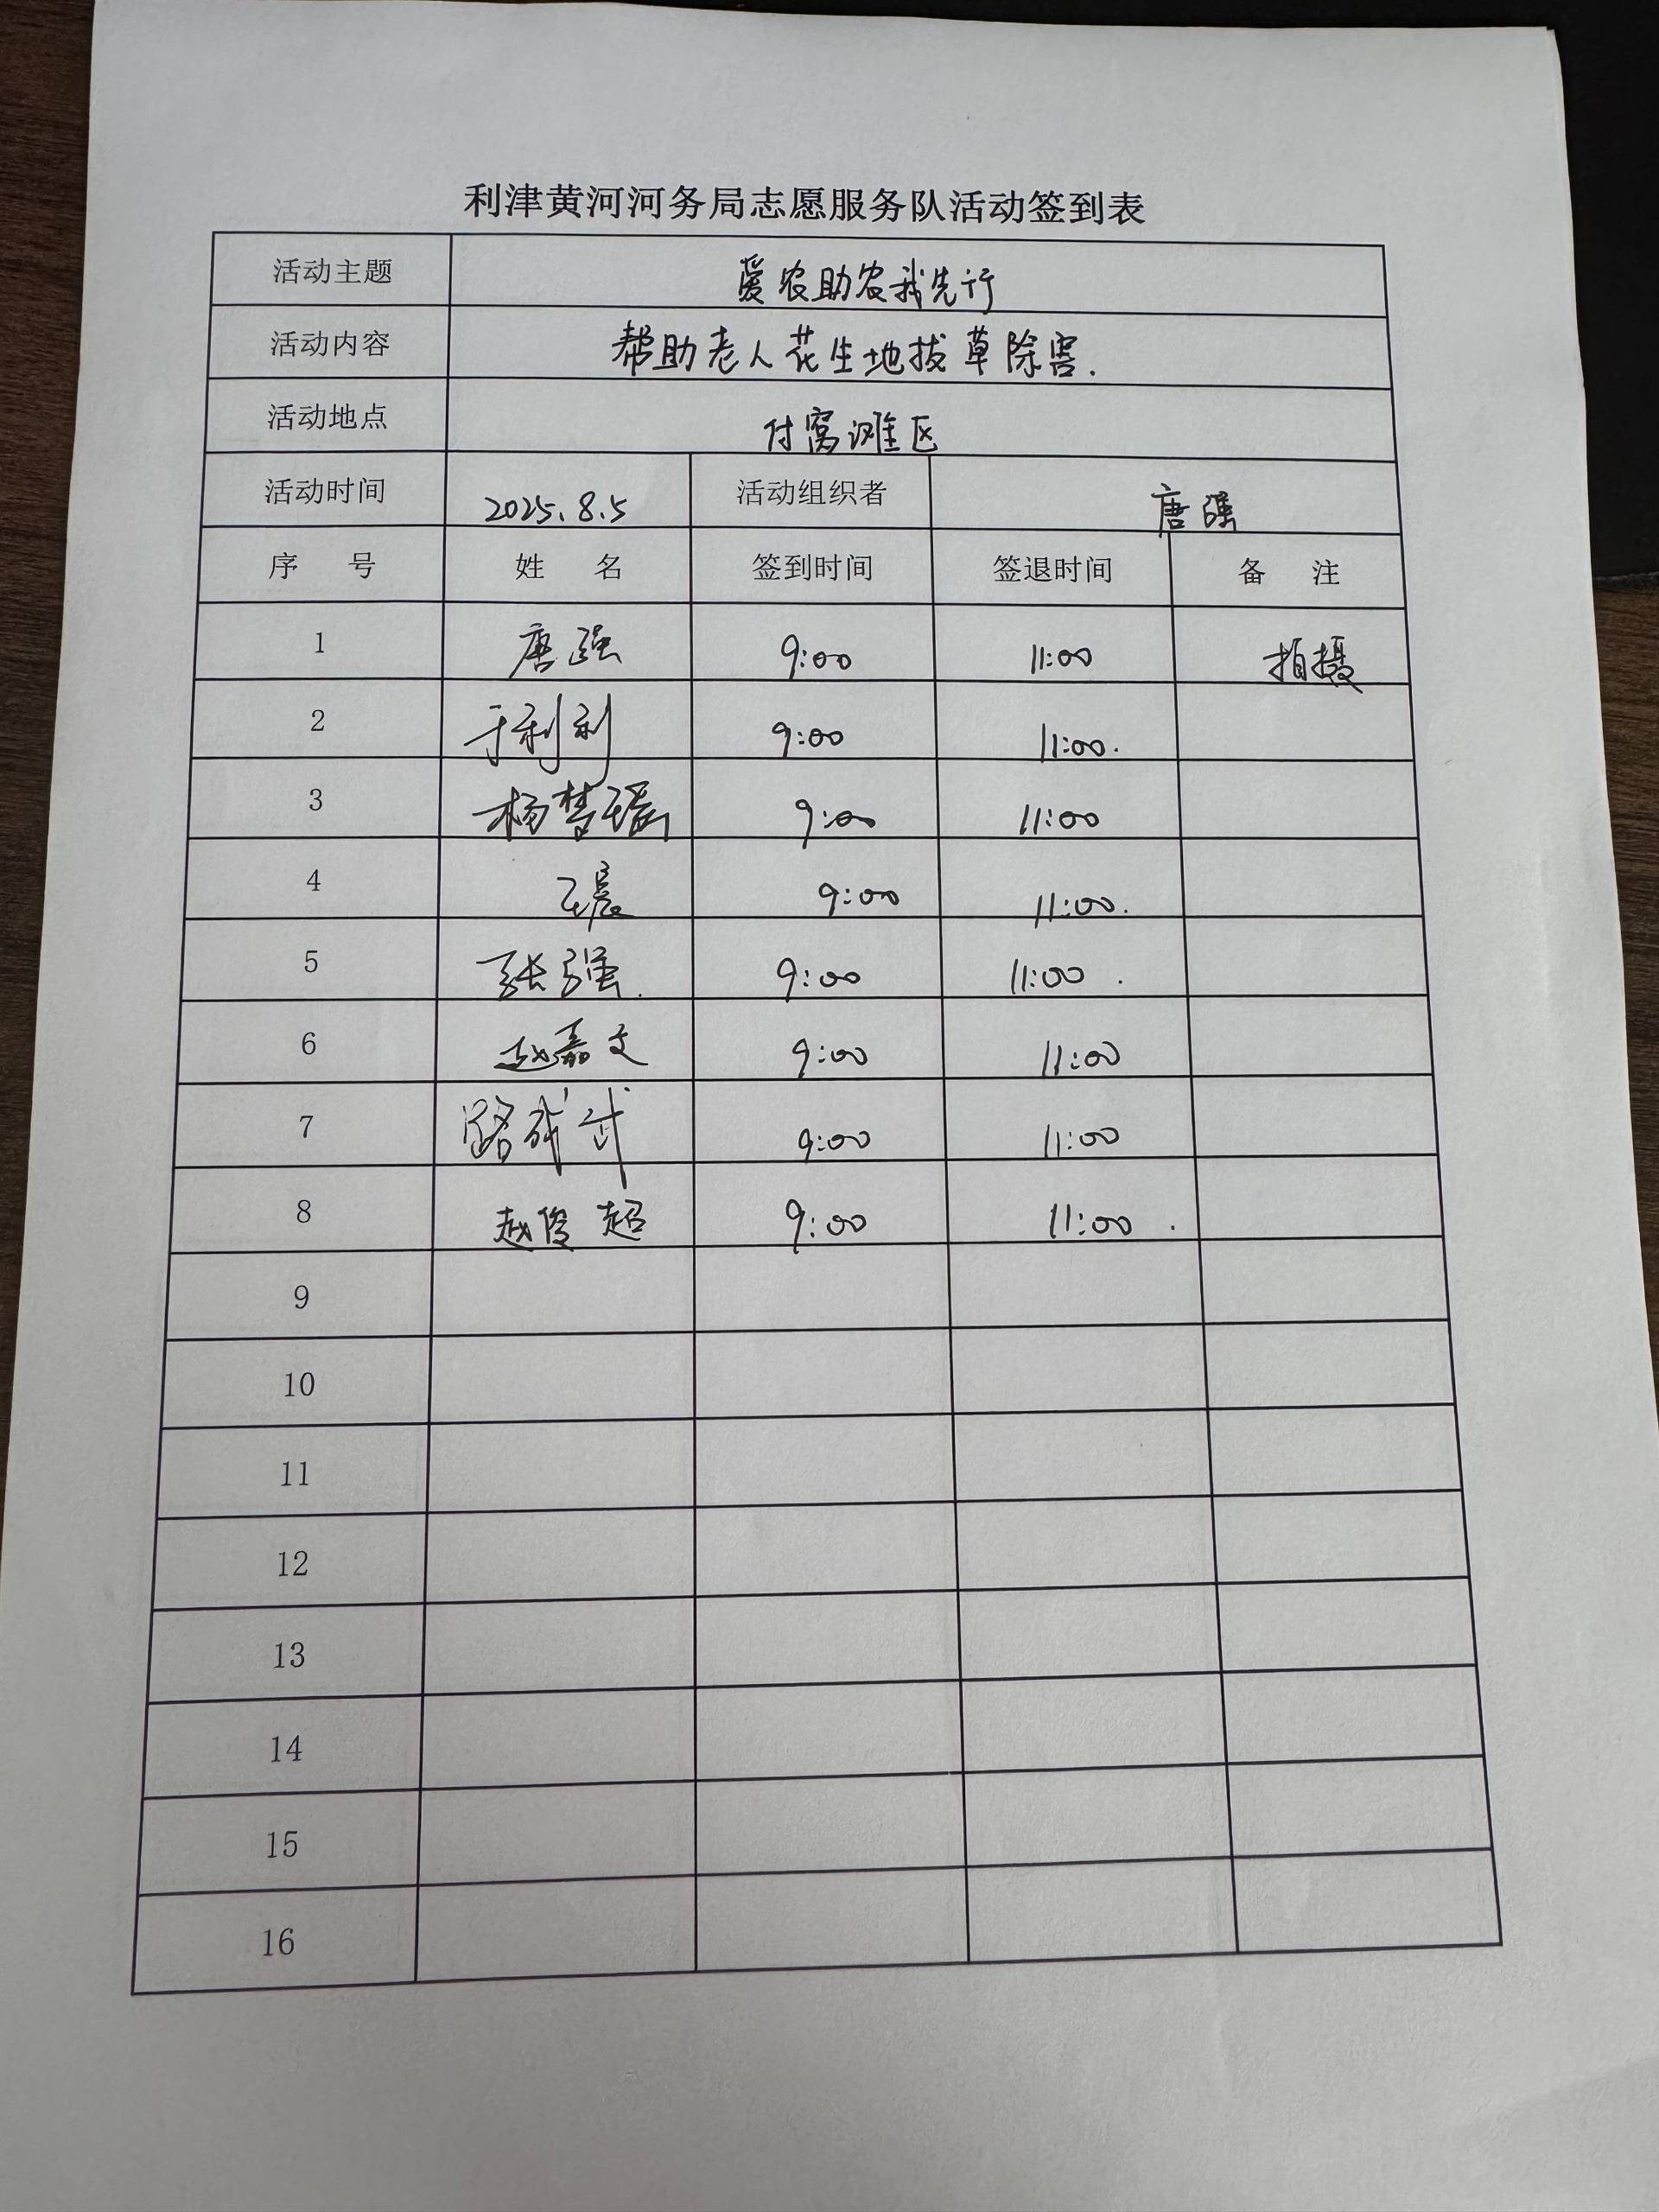 利津黄河河务局志愿服务队活动签到表
活动主题 爱农助农我先行
活动内容 帮助老人花生地拔草除害.
活动地点 付窝滩区
活动时间 2025.8.5 活动组织者 唐强
序 号 姓 名 签到时间 签退时间 备 注
1 唐强 9:00 11:00 拍摄
2 于利利 9:00 11:00.
3 杨梦瑶 9:00 11:00
4 王晨 9:00 11:00.
5 张强. 9:00 11:00.
6 赵嘉文 9:00 11:00
7 路成武 9:00 11:00
8 赵俊超 9:00 11:00.
9
10
11
12
13
14
15
16